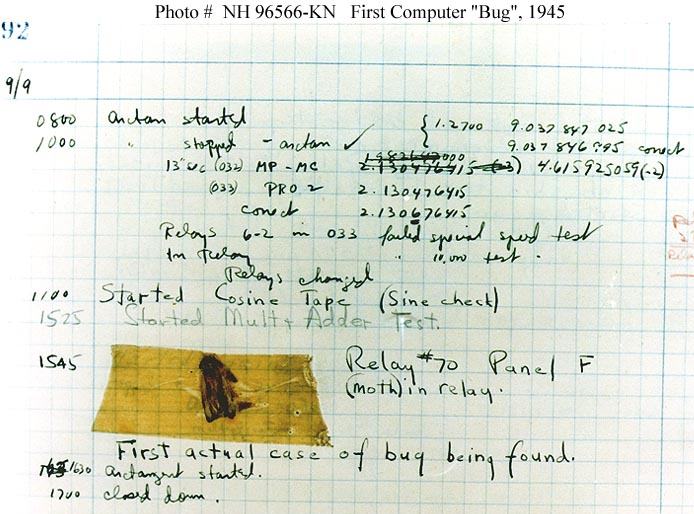 Photo # NH 96566-KN First Computer "Bug", 1945
92
9/9
0800 arctan started
1000 " stopped - arctan ✓ { 1.2700 9.037 847 025
9.037 846 995 correct
13"uc (032) MP - MC 2.130476415 (-3) 4.615925059(-2)
(033) PRO 2 2.130476415
correct 2.130676415
Relays 6-2 in 033 failed special speed test
In Relay " 10.000 test .
Relays changed
1100 Started Cosine Tape (Sine check)
1525 Started Mult + Adder Test.
1545 Relay #70 Panel F
(moth) in relay.
First actual case of bug being found.
1630 arctangent started.
1700 closed down .